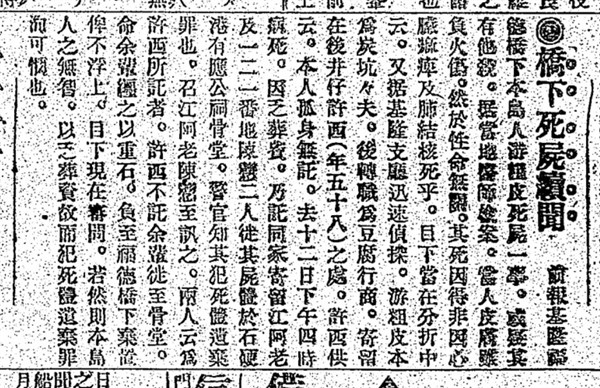 橋下死屍續聞
前報基隆福
德橋下本島人游粗皮死屍一事。或疑其
有他殺。据當地醫師檢案。當人皮膚雖
負火傷。然於性命無關。其死因得非因心
臟痲痺及肺結核死乎。目下當在分折中
云。又据基隆支廳迅速偵探。游粗皮本
為炭坑夫。後轉職為豆腐行商。寄留
在後井仔許西(年五十八)之處。許西供
云。本人孤身無託。去十二日下午四時
病死。因乏葬費。乃託同家寄留江阿老
及一二一番地陳戇二人徙其屍體於石硬
港有應公祠骨堂。警官知其犯死體遺棄
罪也。召江阿老陳戇至訊之。兩人云為
許西所託者。許西不託余輩徙至骨堂。
命余輩纏之以重石。負至福德橋下棄置
俾不浮上。目下現在審問。若然則本島
人之無智。以乏葬資故而犯死體遺棄罪
洵可憫也。
月船聞之日
門